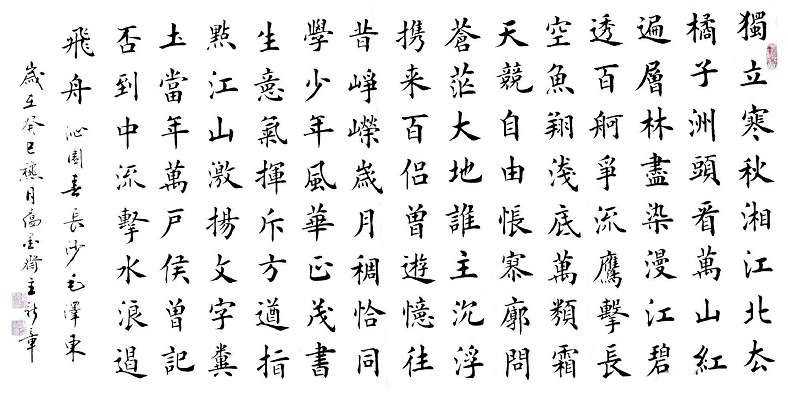 獨立寒秋湘江北去
橘子洲頭看萬山紅
遍層林盡染漫江碧
透百舸爭流鷹擊長
空魚翔淺底萬類霜
天競自由悵寥廓問
蒼茫大地誰主沉浮
携来百侣曾遊憶往
昔崢嶸歲月稠恰同
學少年風華正茂書
生意氣揮斥方遒指
點江山激揚文字糞
土當年萬戶侯曾記
否到中流擊水浪遏
飛舟 沁園春長沙毛澤東
歲在癸巳 月 墨齋主 章